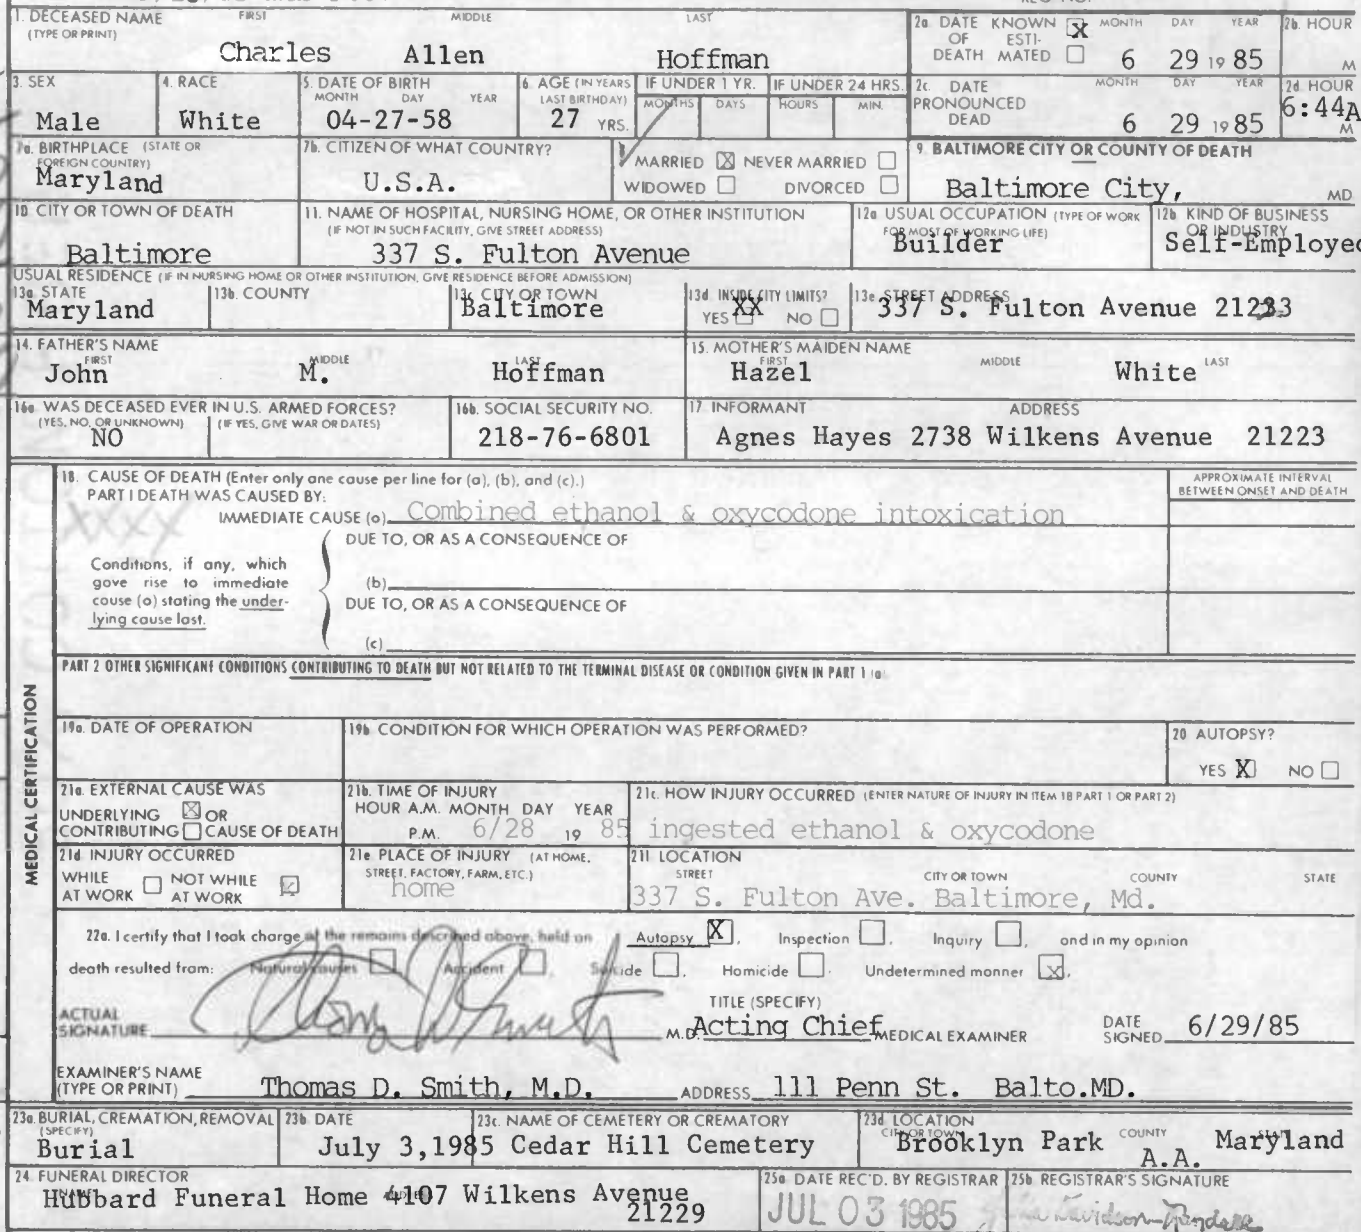 1. DECEASED NAME FIRST MIDDLE LAST
(TYPE OR PRINT)
Charles Allen Hoffman
2a DATE KNOWN X MONTH DAY YEAR
OF ESTI-
DEATH MATED
6 29 19 85
2b. HOUR
M
3. SEX
Male
4. RACE
White
5. DATE OF BIRTH
MONTH DAY YEAR
04-27-58
6. AGE (IN YEARS
LAST BIRTHDAY)
27 YRS.
IF UNDER 1 YR.
MONTHS DAYS
IF UNDER 24 HRS.
HOURS MIN.
2c. DATE MONTH DAY YEAR
PRONOUNCED
DEAD
6 29 19 85
2d HOUR
6:44A
7a. BIRTHPLACE (STATE OR
FOREIGN COUNTRY)
Maryland
7b. CITIZEN OF WHAT COUNTRY?
U.S.A.
8
MARRIED X NEVER MARRIED
WIDOWED DIVORCED
9. BALTIMORE CITY OR COUNTY OF DEATH
Baltimore City, MD
10 CITY OR TOWN OF DEATH
Baltimore
11. NAME OF HOSPITAL, NURSING HOME, OR OTHER INSTITUTION
(IF NOT IN SUCH FACILITY, GIVE STREET ADDRESS)
337 S. Fulton Avenue
12a USUAL OCCUPATION (TYPE OF WORK
FOR MOST OF WORKING LIFE)
Builder
12b KIND OF BUSINESS
OR INDUSTRY
Self-Employed
USUAL RESIDENCE (IF IN NURSING HOME OR OTHER INSTITUTION, GIVE RESIDENCE BEFORE ADMISSION)
13a. STATE
Maryland
13b. COUNTY
13c CITY OR TOWN
Baltimore
13d INSIDE CITY LIMITS?
YES XX NO
13e STREET ADDRESS
337 S. Fulton Avenue 21223
14. FATHER'S NAME
FIRST MIDDLE LAST
John M. Hoffman
15. MOTHER'S MAIDEN NAME
FIRST MIDDLE LAST
Hazel White
16a WAS DECEASED EVER IN U.S. ARMED FORCES?
(YES, NO, OR UNKNOWN) (IF YES, GIVE WAR OR DATES)
NO
16b. SOCIAL SECURITY NO.
218-76-6801
17 INFORMANT ADDRESS
Agnes Hayes 2738 Wilkens Avenue 21223
MEDICAL CERTIFICATION
18. CAUSE OF DEATH (Enter only one cause per line for (a), (b), and (c).)
PART I DEATH WAS CAUSED BY:
XXXX
IMMEDIATE CAUSE (a) Combined ethanol & oxycodone intoxication
APPROXIMATE INTERVAL
BETWEEN ONSET AND DEATH
DUE TO, OR AS A CONSEQUENCE OF
Conditions, if any, which
gave rise to immediate
cause (a) stating the under-
lying cause last.
(b)
DUE TO, OR AS A CONSEQUENCE OF
(c)
PART 2 OTHER SIGNIFICANT CONDITIONS CONTRIBUTING TO DEATH BUT NOT RELATED TO THE TERMINAL DISEASE OR CONDITION GIVEN IN PART 1 (a)
19a. DATE OF OPERATION
19b CONDITION FOR WHICH OPERATION WAS PERFORMED?
20 AUTOPSY?
YES X NO
21a. EXTERNAL CAUSE WAS
UNDERLYING X OR
CONTRIBUTING CAUSE OF DEATH
21b. TIME OF INJURY
HOUR A.M. MONTH DAY YEAR
P.M. 6/28 19 85
21c. HOW INJURY OCCURRED (ENTER NATURE OF INJURY IN ITEM 18 PART 1 OR PART 2)
ingested ethanol & oxycodone
21d INJURY OCCURRED
WHILE NOT WHILE
AT WORK AT WORK X
21e PLACE OF INJURY (AT HOME,
STREET, FACTORY, FARM, ETC.)
home
21f LOCATION
STREET CITY OR TOWN COUNTY STATE
337 S. Fulton Ave. Baltimore, Md.
22a. I certify that I took charge of the remains described above, held an Autopsy X, Inspection, Inquiry, and in my opinion
death resulted from: Natural causes, Accident, Suicide, Homicide, Undetermined manner X.
ACTUAL
SIGNATURE
M.D.
TITLE (SPECIFY)
Acting Chief MEDICAL EXAMINER
DATE
SIGNED 6/29/85
EXAMINER'S NAME
(TYPE OR PRINT) Thomas D. Smith, M.D. ADDRESS 111 Penn St. Balto.MD.
23a. BURIAL, CREMATION, REMOVAL
(SPECIFY)
Burial
23b. DATE
July 3,1985
23c. NAME OF CEMETERY OR CREMATORY
Cedar Hill Cemetery
23d LOCATION
CITY OR TOWN COUNTY STATE
Brooklyn Park A.A. Maryland
24 FUNERAL DIRECTOR
Hubbard Funeral Home 4107 Wilkens Avenue
21229
25a DATE REC'D. BY REGISTRAR
JUL 03 1985
25b REGISTRAR'S SIGNATURE
Davidson-Randall